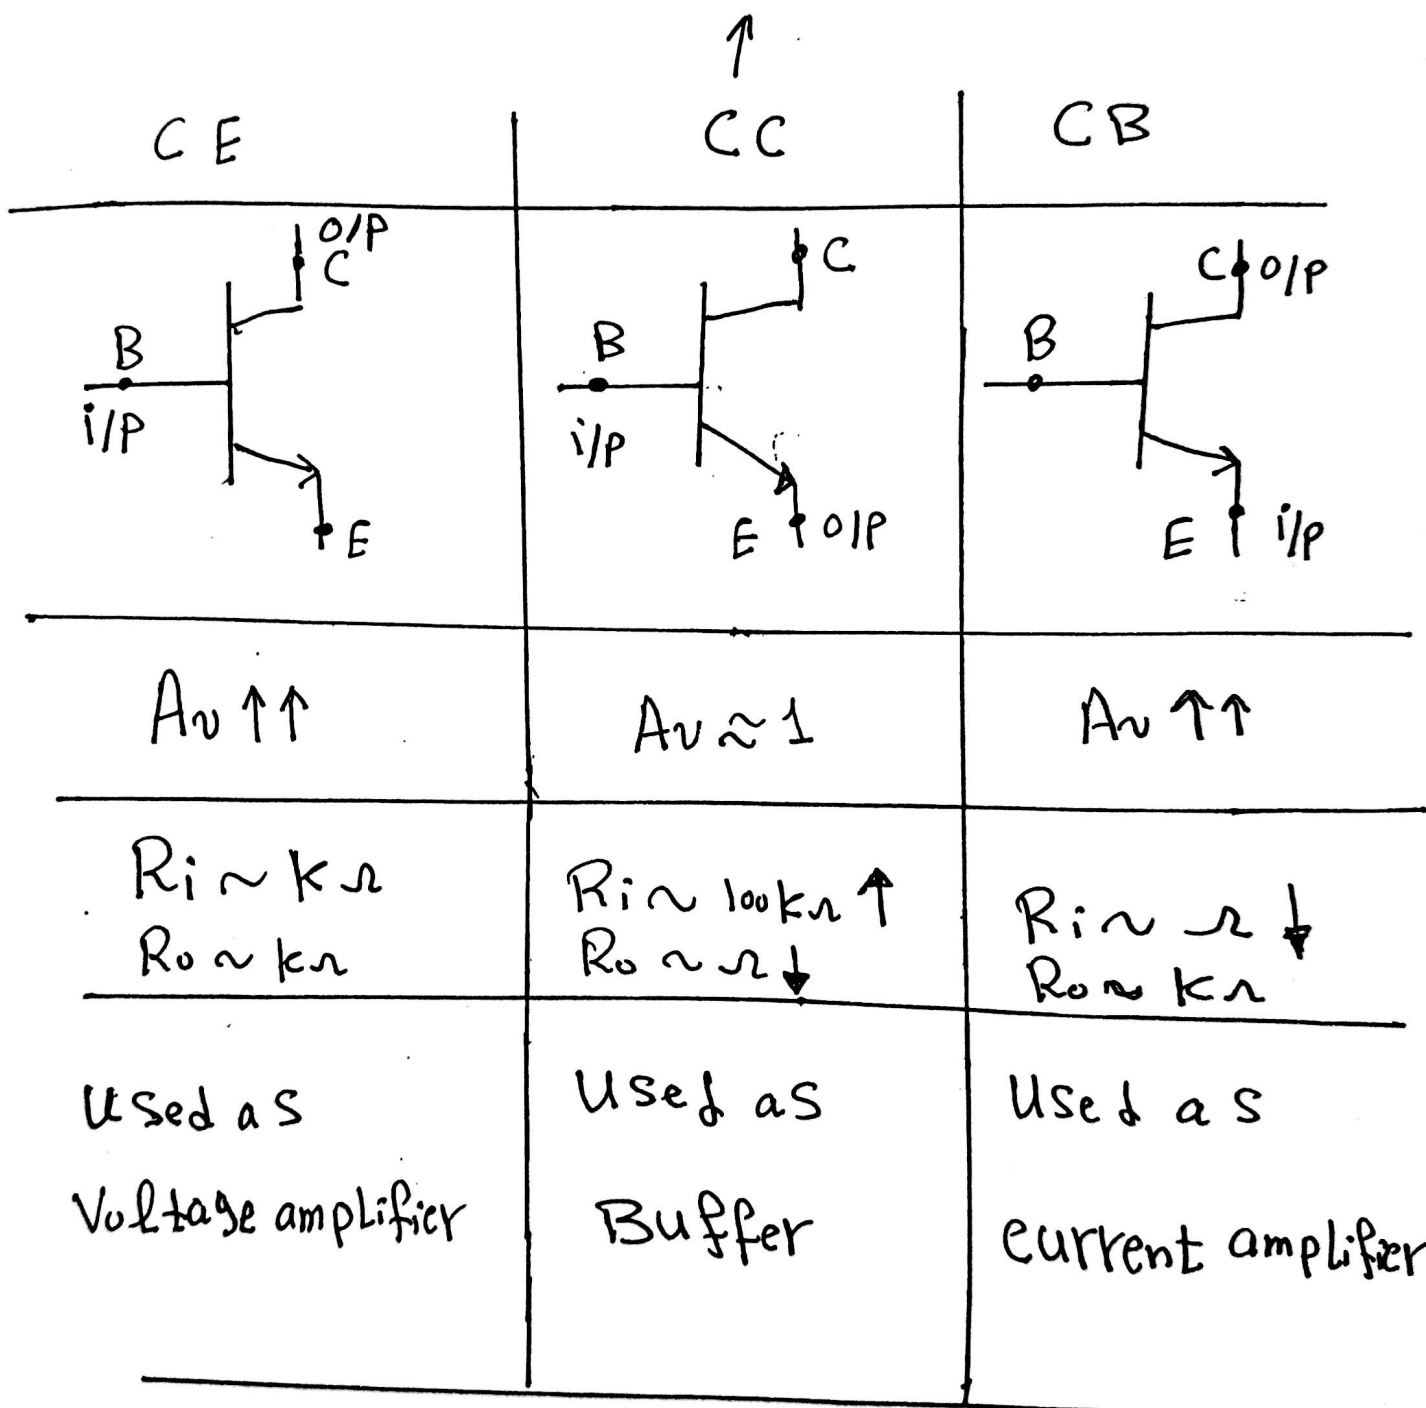 ↑
CE CC CB
O/P
C
B
i/P
E
C
B
i/P
E O/P
C O/P
B
E i/P
Av ↑↑
Av ≈ 1
Av ↑↑
Ri ~ kΩ
Ro ~ kΩ
Ri ~ 100kΩ ↑
Ro ~ Ω ↓
Ri ~ Ω ↓
Ro ~ kΩ
Used as
Voltage amplifier
Used as
Buffer
Used as
current amplifier